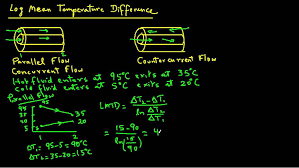 Log Mean Temperature Difference
1 2
Parallel Flow
Concurrent Flow
Countercurrent Flow
Hot fluid enters at 95°C exits at 35°C
Cold fluid enters at 5°C exits at 20°C
Parallel Flow
95
35
20
5
ΔT₁ = 95-5 = 90°C
ΔT₂ = 35-20 = 15°C
LMTD = ΔT₂ - ΔT₁
ln ΔT₂
ΔT₁
= 15-90 = 4
ln(15/90)